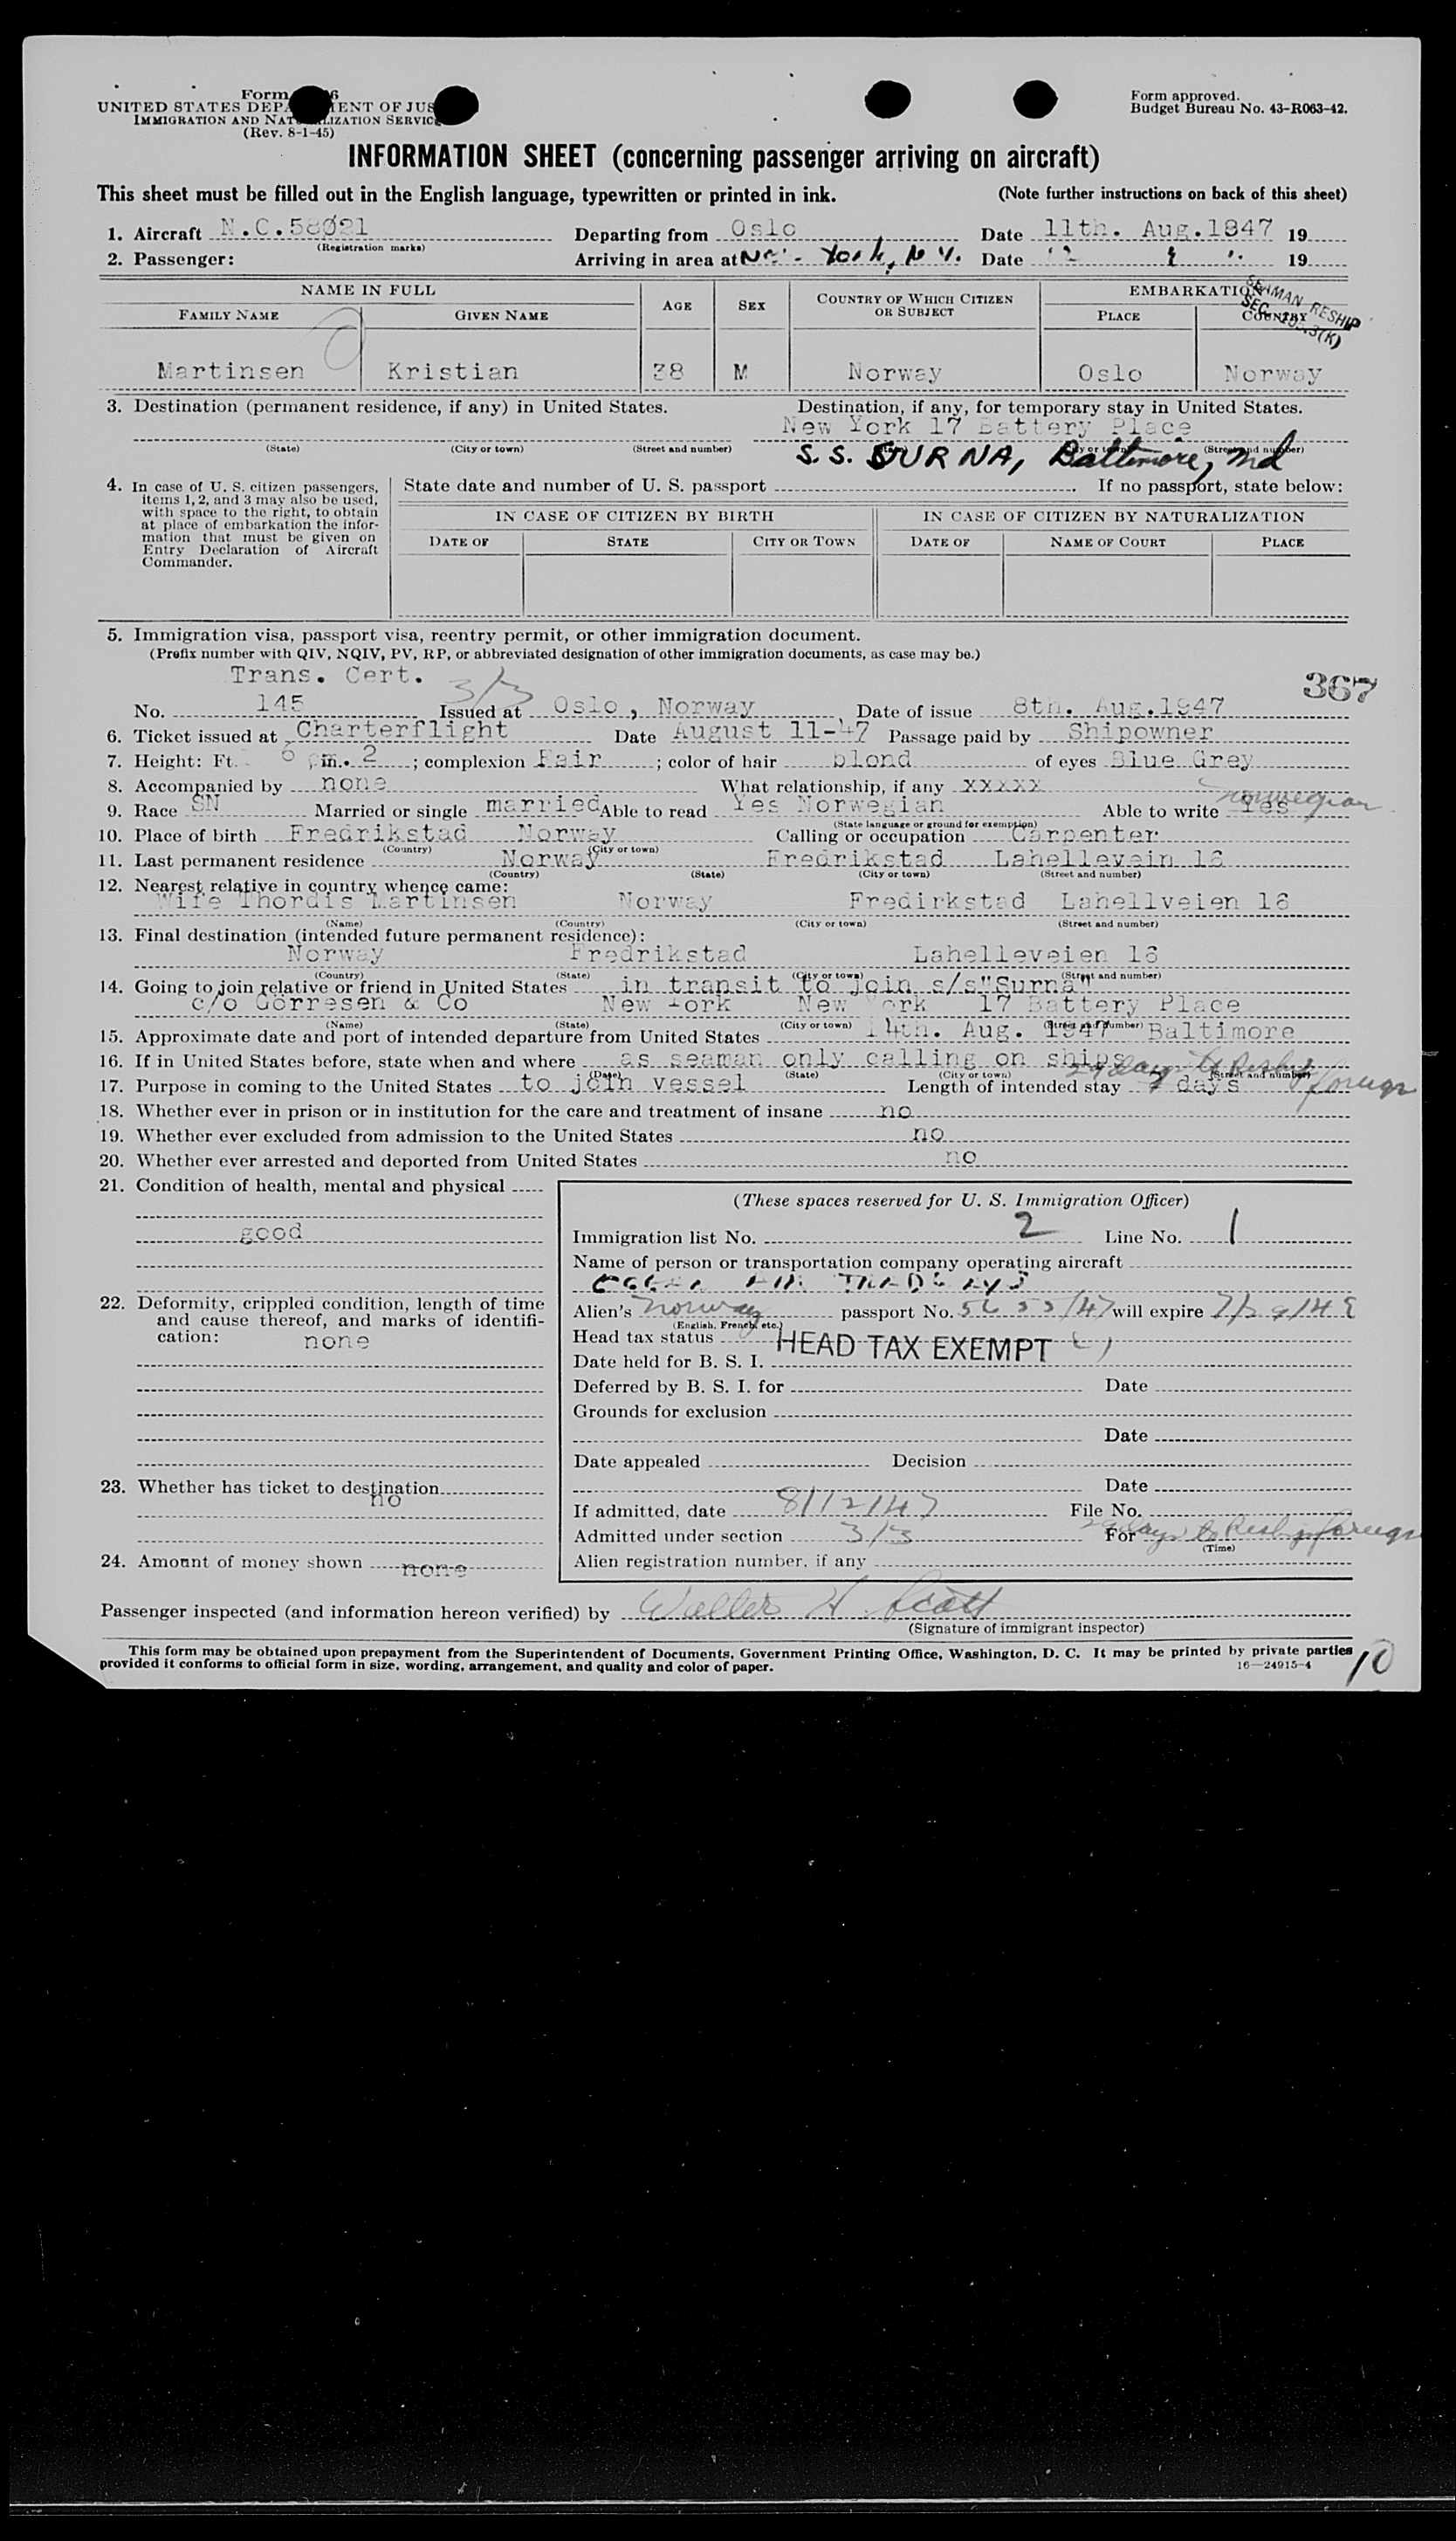 Form
UNITED STATES DEPARTMENT OF JUSTICE
IMMIGRATION AND NATURALIZATION SERVICE
(Rev. 8-1-45)
Form approved.
Budget Bureau No. 43-R063-42.
INFORMATION SHEET (concerning passenger arriving on aircraft)
This sheet must be filled out in the English language, typewritten or printed in ink. (Note further instructions on back of this sheet)
1. Aircraft N.C.58021 Departing from Oslo Date 11th. Aug.1947 19
(Registration marks)
2. Passenger: Arriving in area at New York, N.Y. Date 19
SEAMAN RESHIP
NAME IN FULL AGE SEX COUNTRY OF WHICH CITIZEN OR SUBJECT EMBARKATION
FAMILY NAME GIVEN NAME PLACE COUNTRY
Martinsen Kristian 38 M Norway Oslo Norway
3. Destination (permanent residence, if any) in United States. Destination, if any, for temporary stay in United States.
New York 17 Battery Place
(State) (City or town) (Street and number) (City or town) (Street and number)
S.S. SURNA, Baltimore, Md
4. In case of U. S. citizen passengers, items 1, 2, and 3 may also be used, with space to the right, to obtain at place of embarkation the information that must be given on Entry Declaration of Aircraft Commander.
State date and number of U. S. passport If no passport, state below:
IN CASE OF CITIZEN BY BIRTH IN CASE OF CITIZEN BY NATURALIZATION
DATE OF STATE CITY OR TOWN DATE OF NAME OF COURT PLACE
5. Immigration visa, passport visa, reentry permit, or other immigration document.
(Prefix number with QIV, NQIV, PV, RP, or abbreviated designation of other immigration documents, as case may be.)
Trans. Cert. 3/3 367
No. 145 Issued at Oslo, Norway Date of issue 8th. Aug.1947
6. Ticket issued at Charterflight Date August 11-47 Passage paid by Shipowner
7. Height: Ft. 6 in. 2; complexion Fair; color of hair blond of eyes Blue Grey
8. Accompanied by none What relationship, if any xxxxx
9. Race SN Married or single married Able to read Yes Norwegian Able to write Yes Norwegian
(State language or ground for exemption)
10. Place of birth Fredrikstad Norway Calling or occupation Carpenter
(Country) (City or town)
11. Last permanent residence Norway Fredrikstad Lahellevein 16
(Country) (State) (City or town) (Street and number)
12. Nearest relative in country whence came:
Wife Thordis Martinsen Norway Fredirkstad Lahellveien 16
(Name) (Country) (City or town) (Street and number)
13. Final destination (intended future permanent residence):
Norway Fredrikstad Lahelleveien 16
(Country) (State) (City or town) (Street and number)
14. Going to join relative or friend in United States in transit to join s/s"Surna"
c/o Gorresen & Co New York New York 17 Battery Place
(Name) (State) (City or town) (Street and number)
15. Approximate date and port of intended departure from United States 14th. Aug. 1947 Baltimore
16. If in United States before, state when and where as seaman only calling on ships
(Date) (State) (City or town) (Street and number)
29 days to Reship foreign
17. Purpose in coming to the United States to join vessel Length of intended stay 7 days
18. Whether ever in prison or in institution for the care and treatment of insane no
19. Whether ever excluded from admission to the United States no
20. Whether ever arrested and deported from United States no
21. Condition of health, mental and physical
good
22. Deformity, crippled condition, length of time and cause thereof, and marks of identification: none
23. Whether has ticket to destination
no
24. Amount of money shown none
(These spaces reserved for U. S. Immigration Officer)
Immigration list No. 2 Line No. 1
Name of person or transportation company operating aircraft
Alien's Norway passport No. 5655/47 will expire
(English, French, etc.)
Head tax status HEAD TAX EXEMPT
Date held for B. S. I.
Deferred by B. S. I. for Date
Grounds for exclusion
Date
Date appealed Decision
Date
If admitted, date 8/12/47 File No.
Admitted under section 3/3 For 29 days to Reship foreign
(Time)
Alien registration number, if any
Passenger inspected (and information hereon verified) by Walter H. Scott
(Signature of immigrant inspector)
This form may be obtained upon prepayment from the Superintendent of Documents, Government Printing Office, Washington, D. C. It may be printed by private parties
provided it conforms to official form in size, wording, arrangement, and quality and color of paper. 16—24915-4
10